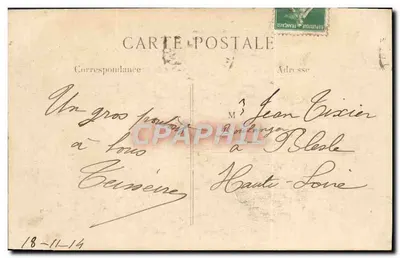 CARTE POSTALE
Correspondance
Adresse
Un gros
à tous
Teisseire
18-11-14
Mr Jean Tixier
à Blesle
Haute-Loire
CPAPHIL